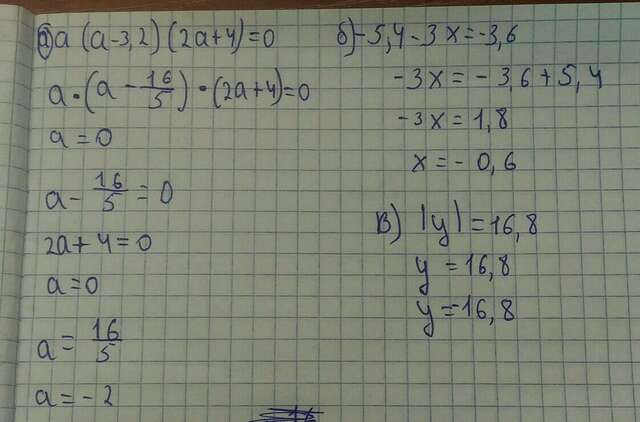 а) a (a-3,2) (2a+4)=0
a·(a-16/5)·(2a+4)=0
a=0
a-16/5=0
2a+4=0
a=0
a=16/5
a=-2
б)-5,4-3x=-3,6
-3x=-3,6+5,4
-3x=1,8
x=-0,6
в) |y|=16,8
y=16,8
y=-16,8